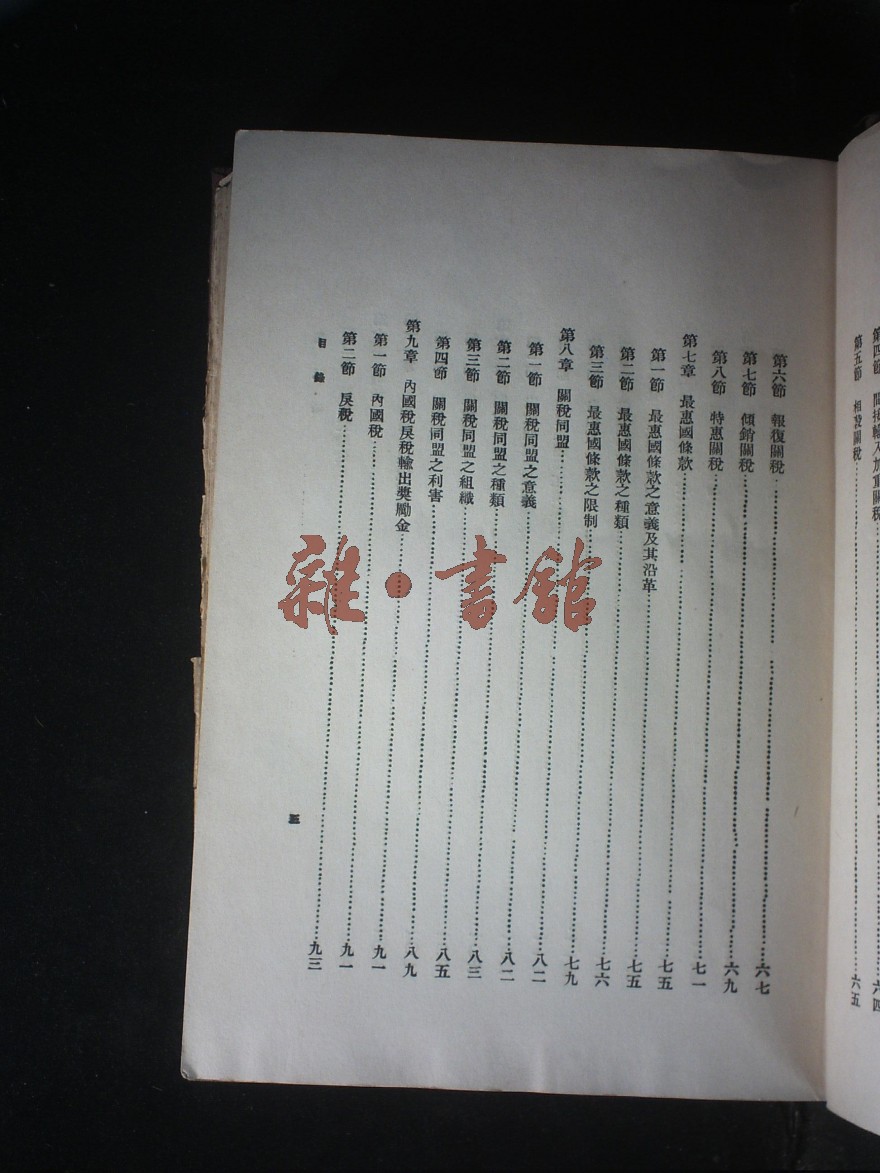 第四節 間接輸入加重關稅……六四
第五節 相殺關稅……六五
第六節 報復關稅……六七
第七節 傾銷關稅……六九
第八節 特惠關稅……七一
第七章 最惠國條款……七五
第一節 最惠國條款之意義及其沿革……七五
第二節 最惠國條款之種類……七六
第三節 最惠國條款之限制……七九
第八章 關稅同盟……八二
第一節 關稅同盟之意義……八二
第二節 關稅同盟之種類……八三
第三節 關稅同盟之組織……八五
第四節 關稅同盟之利害……八九
第九章 內國稅戾稅輸出獎勵金……九一
第一節 內國稅……九一
第二節 戾稅……九三
目錄
三
雜·書館